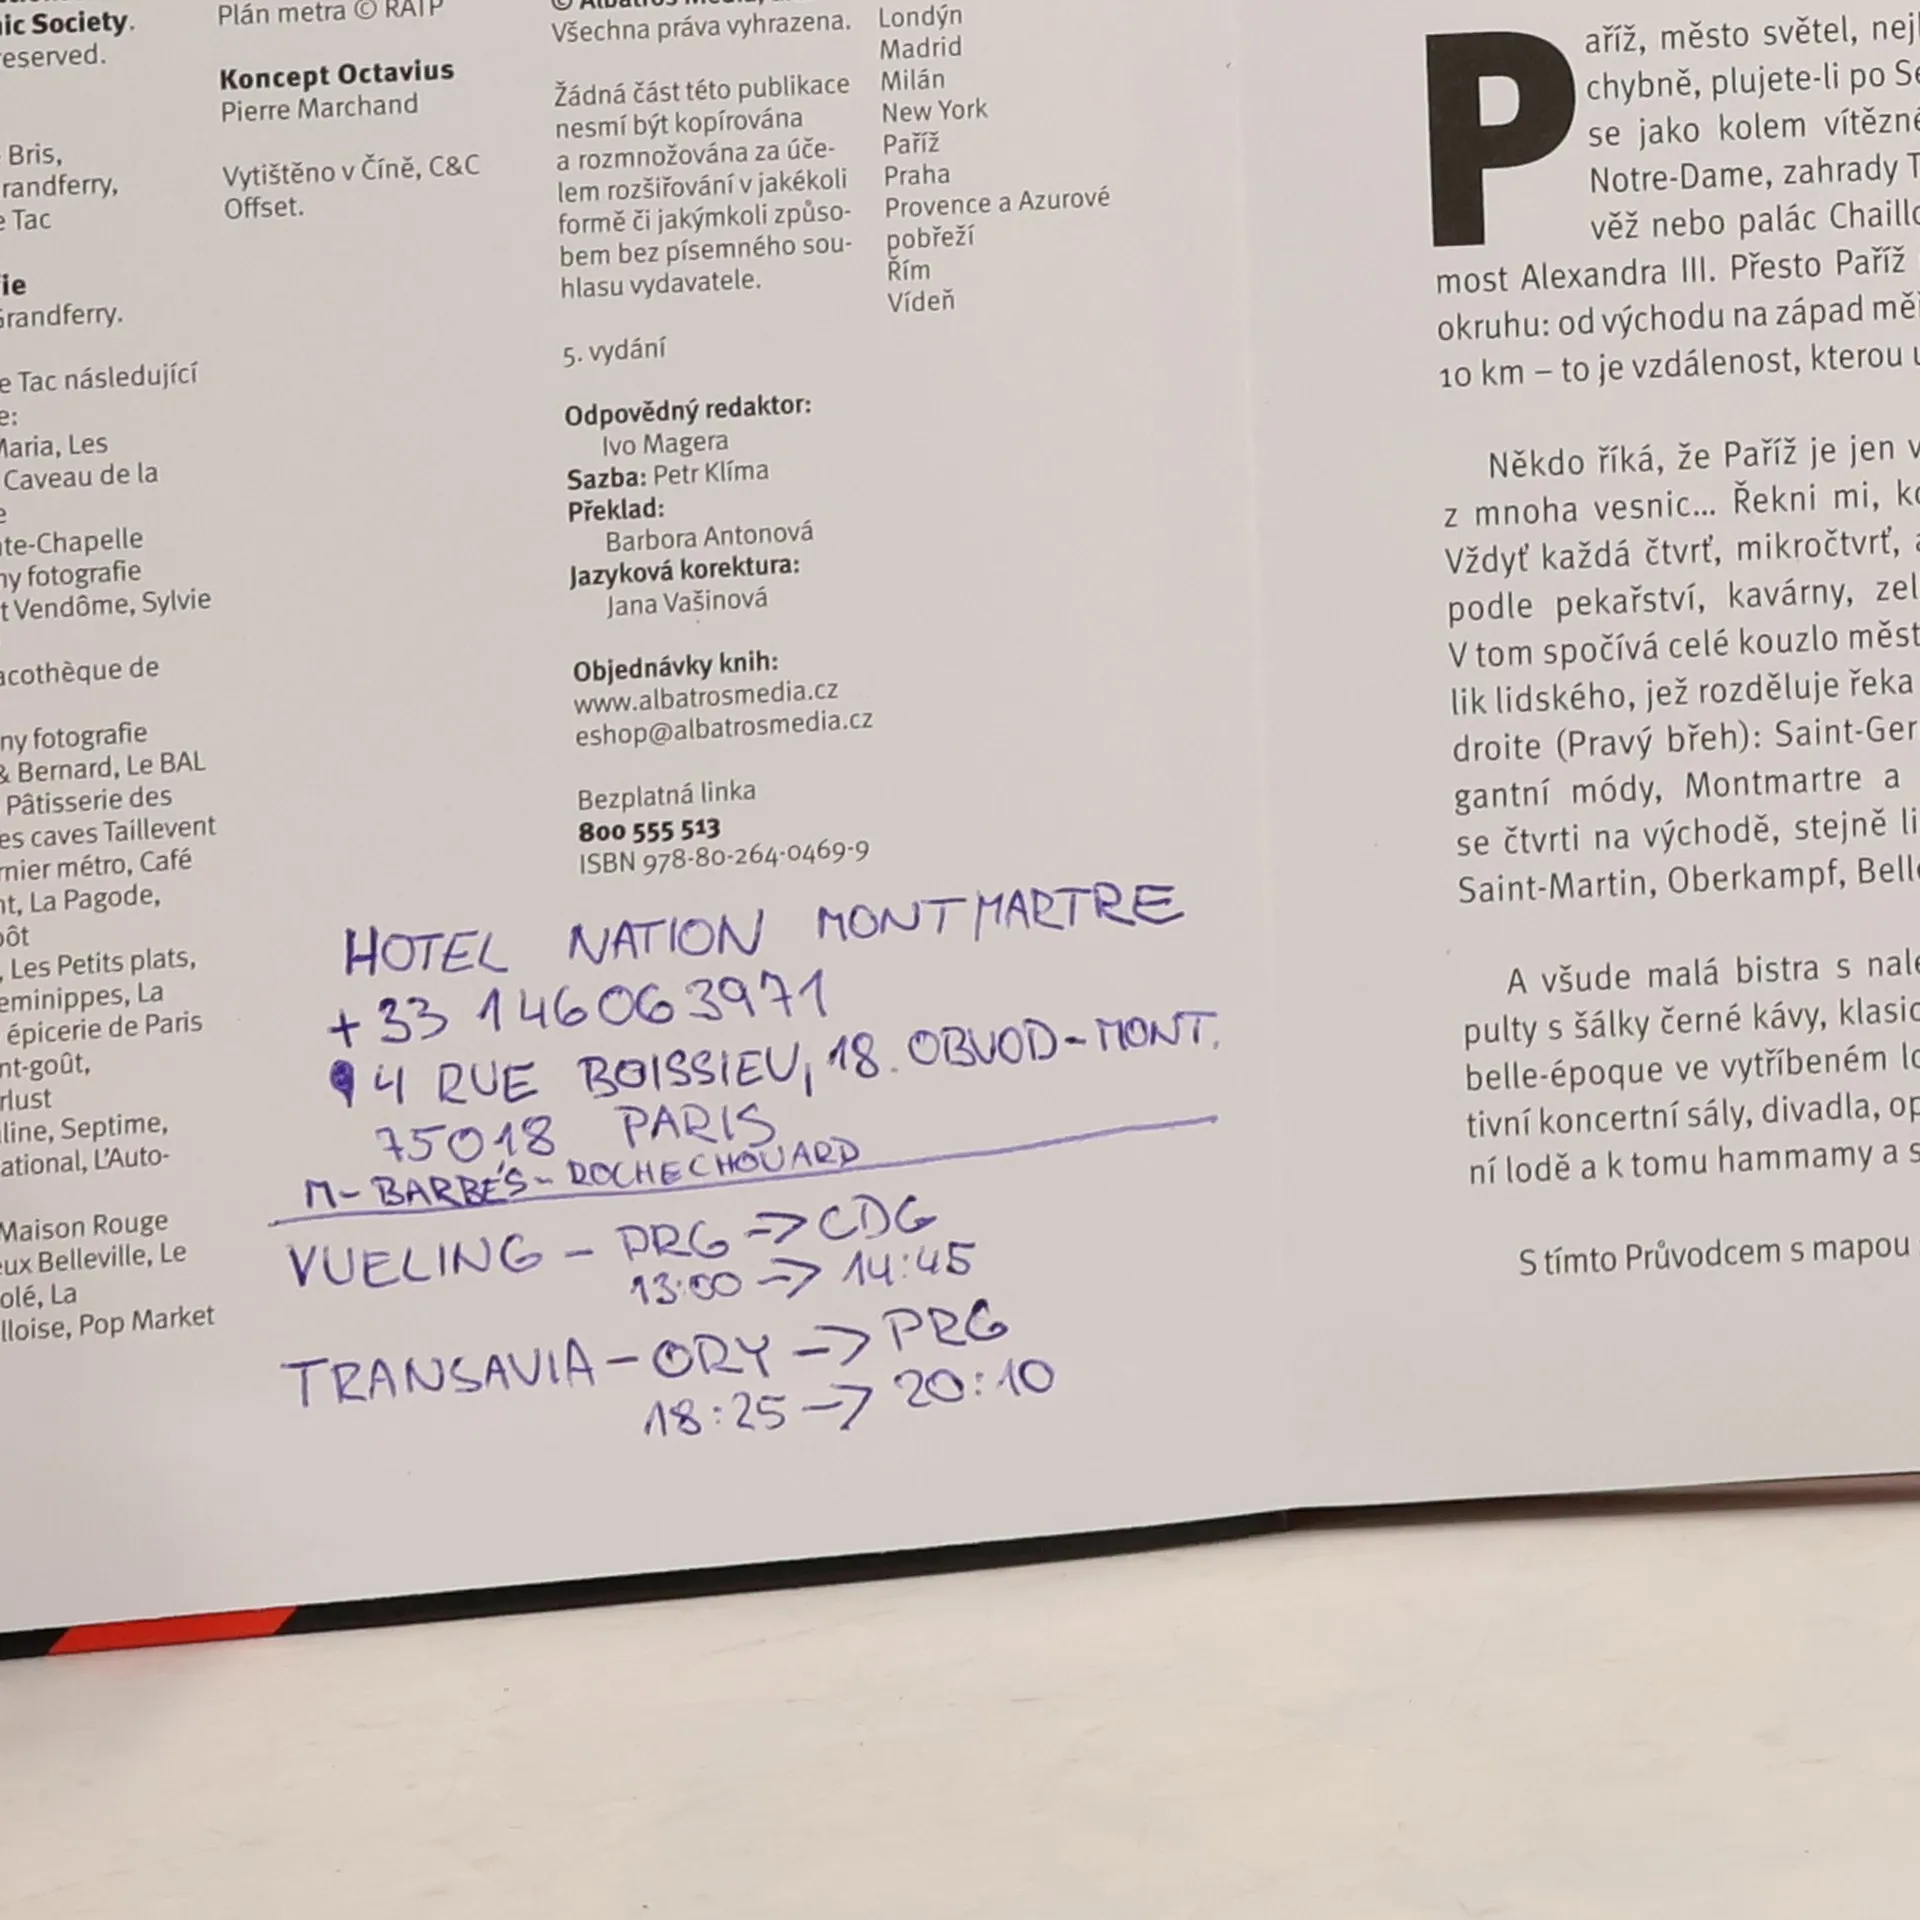 ic Society.
eserved.
Bris,
randferry,
Tac
ie
Grandferry.
e Tac následující
e:
Maria, Les
Caveau de la
e
nte-Chapelle
ny fotografie
t Vendôme, Sylvie
acothèque de
ny fotografie
& Bernard, Le BAL
Pâtisserie des
es caves Taillevent
rnier métro, Café
nt, La Pagode,
pôt
, Les Petits plats,
eminippes, La
épicerie de Paris
nt-goût,
rlust
line, Septime,
ational, L'Auto-
Maison Rouge
eux Belleville, Le
olé, La
lloise, Pop Market
Plán metra © RATP
Koncept Octavius
Pierre Marchand
Vytištěno v Číně, C&C
Offset.
© Albatros Media,
Všechna práva vyhrazena.
Žádná část této publikace
nesmí být kopírována
a rozmnožována za úče-
lem rozšiřování v jakékoli
formě či jakýmkoli způso-
bem bez písemného sou-
hlasu vydavatele.
5. vydání
Odpovědný redaktor:
Ivo Magera
Sazba: Petr Klíma
Překlad:
Barbora Antonová
Jazyková korektura:
Jana Vašinová
Objednávky knih:
www.albatrosmedia.cz
eshop@albatrosmedia.cz
Bezplatná linka
800 555 513
ISBN 978-80-264-0469-9
Londýn
Madrid
Milán
New York
Paříž
Praha
Provence a Azurové
pobřeží
Řím
Vídeň
HOTEL NATION MONTMARTRE
+33 146063971
4 RUE BOISSIEU, 18. OBVOD-MONT.
75018 PARIS
M-BARBÉS-ROCHECHOUARD
VUELING - PRG -> CDG
13:00 -> 14:45
TRANSAVIA - ORY -> PRG
18:25 -> 20:10
Paříž, město světel, nej
chybně, plujete-li po Se
se jako kolem vítězné
Notre-Dame, zahrady T
věž nebo palác Chaillo
most Alexandra III. Přesto Paříž
okruhu: od východu na západ měř
10 km – to je vzdálenost, kterou u
Někdo říká, že Paříž je jen v
z mnoha vesnic... Řekni mi, kd
Vždyť každá čtvrť, mikročtvrť, a
podle pekařství, kavárny, zel
V tom spočívá celé kouzlo měst
lik lidského, jež rozděluje řeka
droite (Pravý břeh): Saint-Ger
gantní módy, Montmartre a
se čtvrti na východě, stejně li
Saint-Martin, Oberkampf, Belle
A všude malá bistra s nale
pulty s šálky černé kávy, klasic
belle-époque ve vytříbeném lo
tivní koncertní sály, divadla, op
ní lodě a k tomu hammamy a s
S tímto Průvodcem s mapou